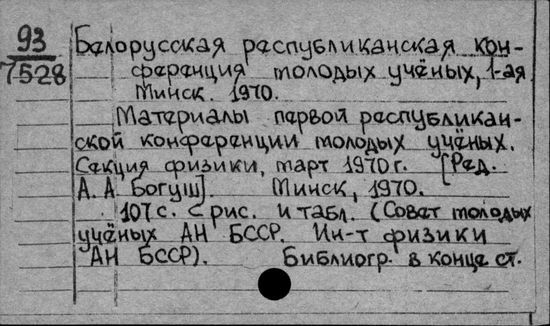 93
7528
Белорусская республиканская кон-
ференция молодых учёных, 1-ая
Минск. 1970.
Материалы первой республикан-
ской конференции молодых учёных.
Секция физики, март 1970 г. [Ред.
А. А Богуш]. Минск, 1970.
107 с. с рис. и табл. (Совет молодых
учёных АН БССР. Ин-т физики
АН БССР). Библиогр. в конце ст.